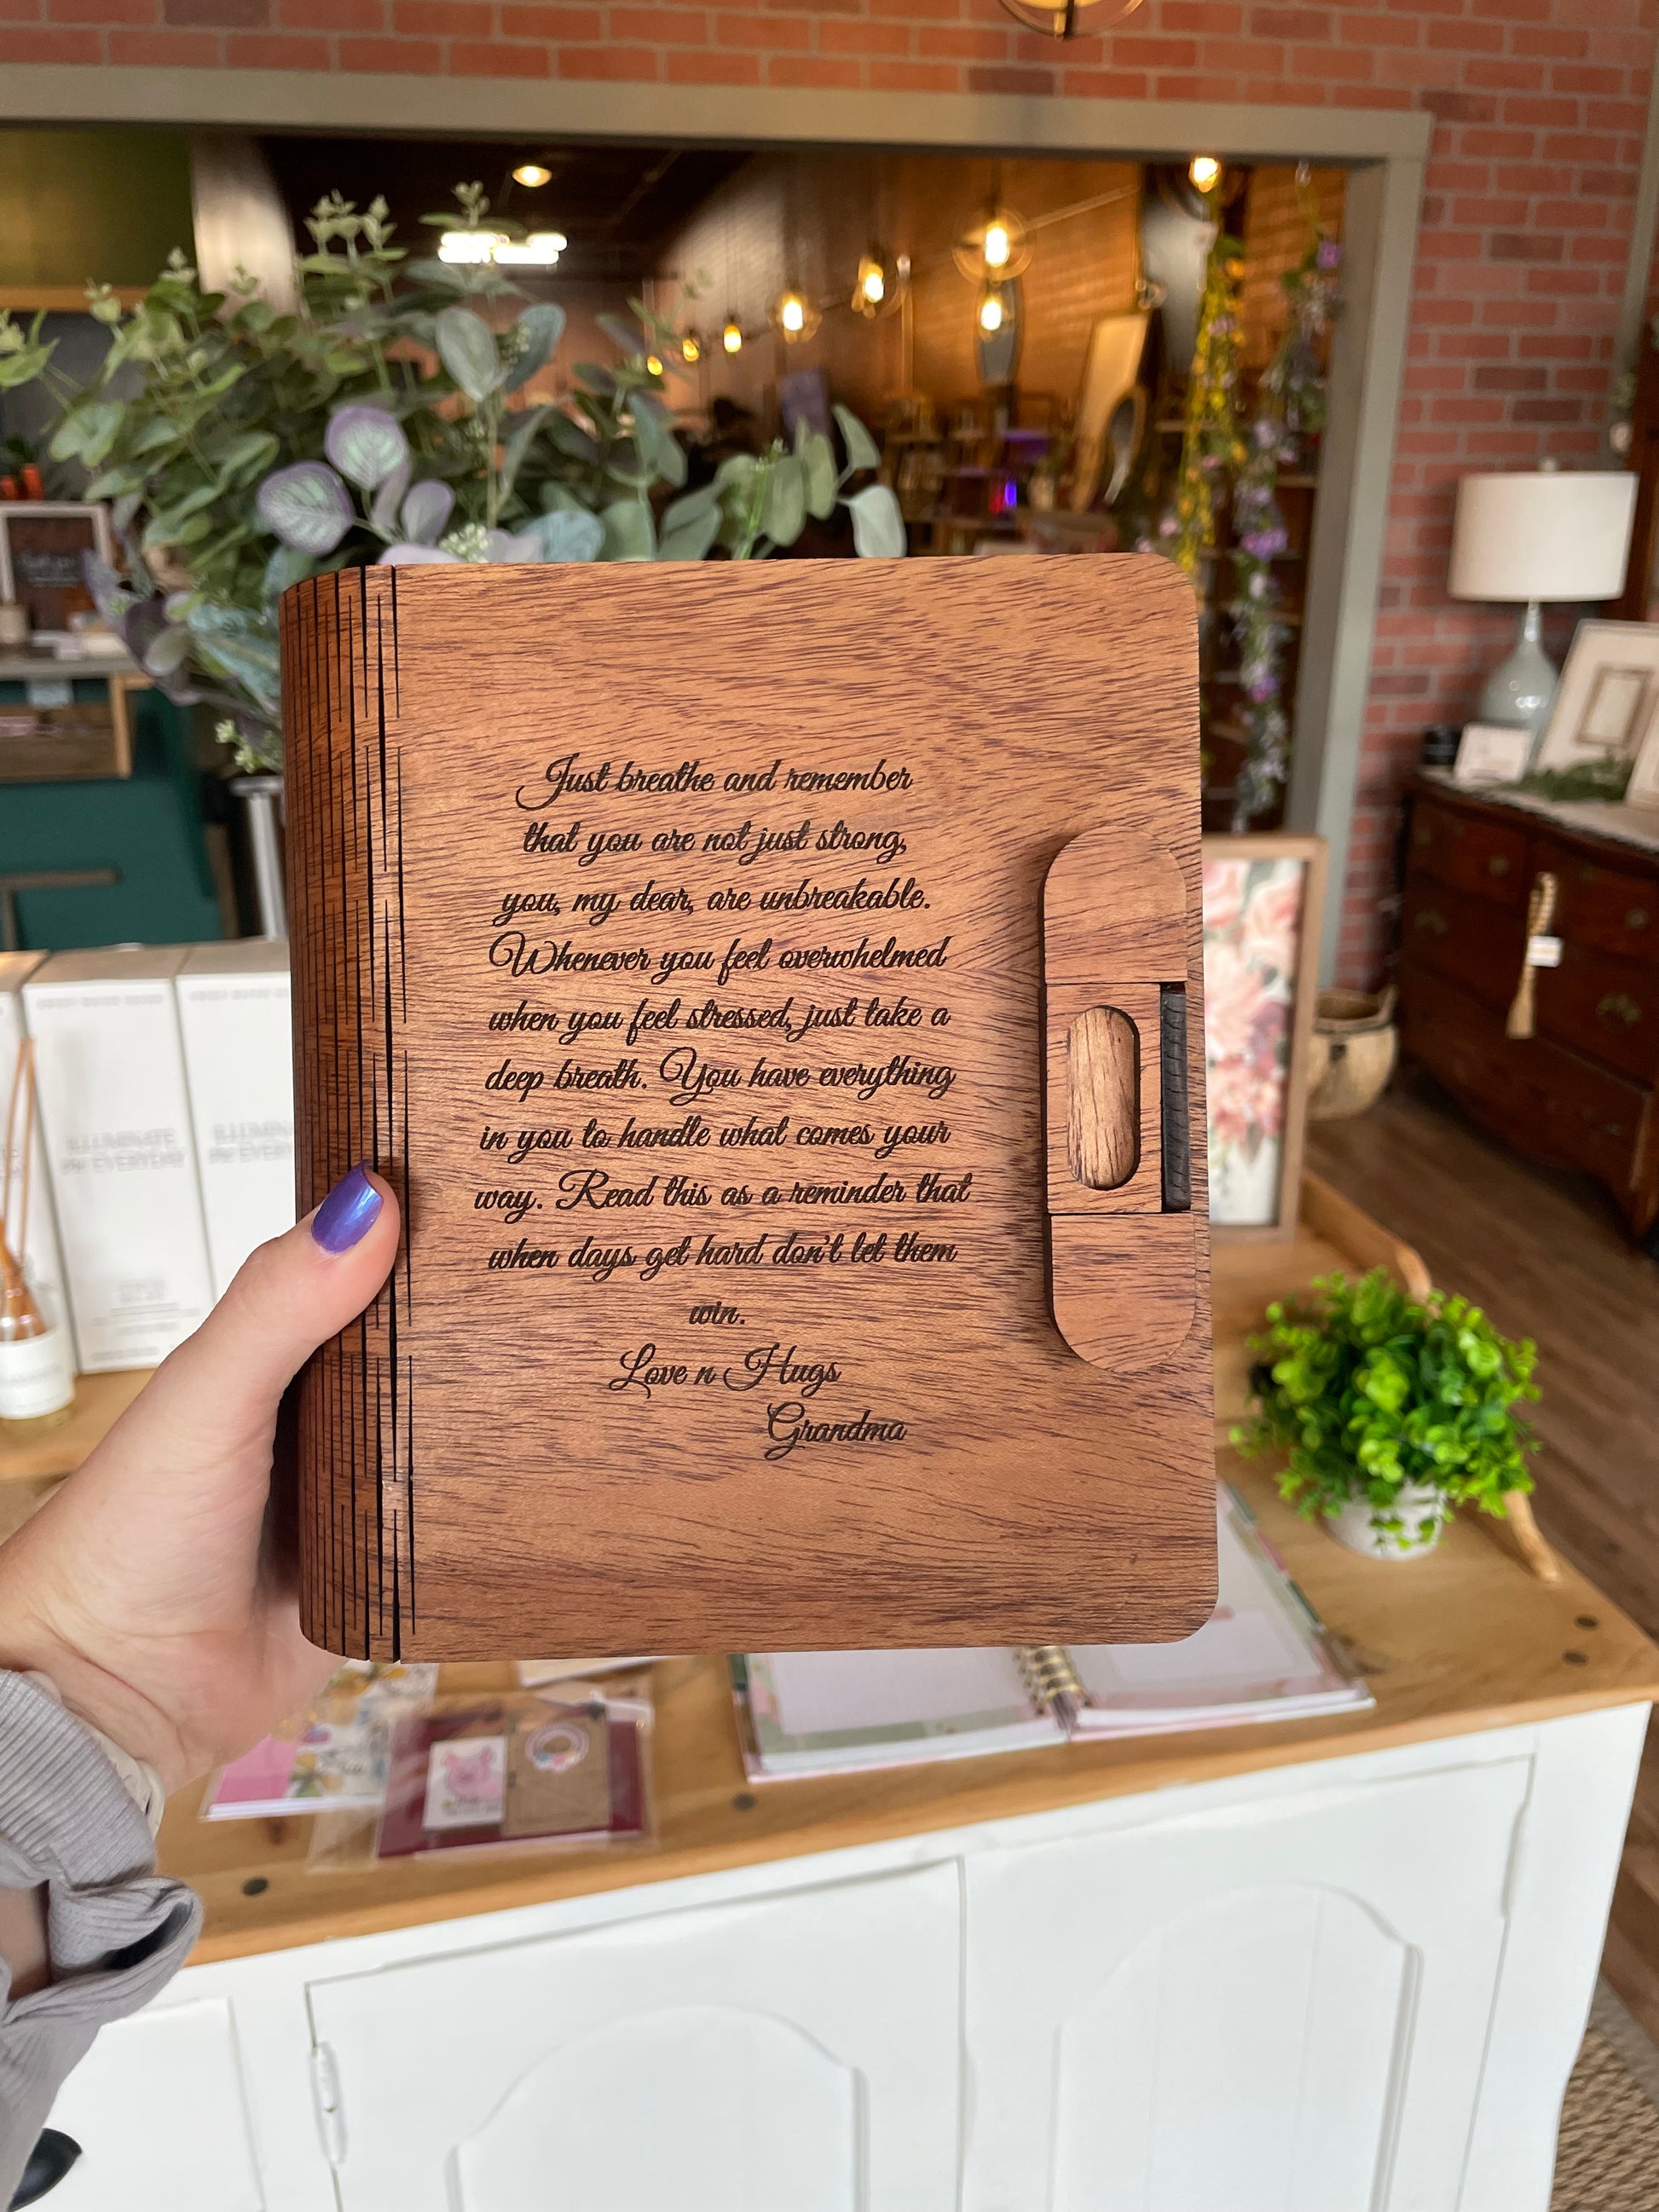 Just breathe and remember
that you are not just strong,
you, my dear, are unbreakable.
Whenever you feel overwhelmed
when you feel stressed, just take a
deep breath. You have everything
in you to handle what comes your
way. Read this as a reminder that
when days get hard don't let them
win.
Love n Hugs
Grandma
ILLUMINATE
the EVERYDAY